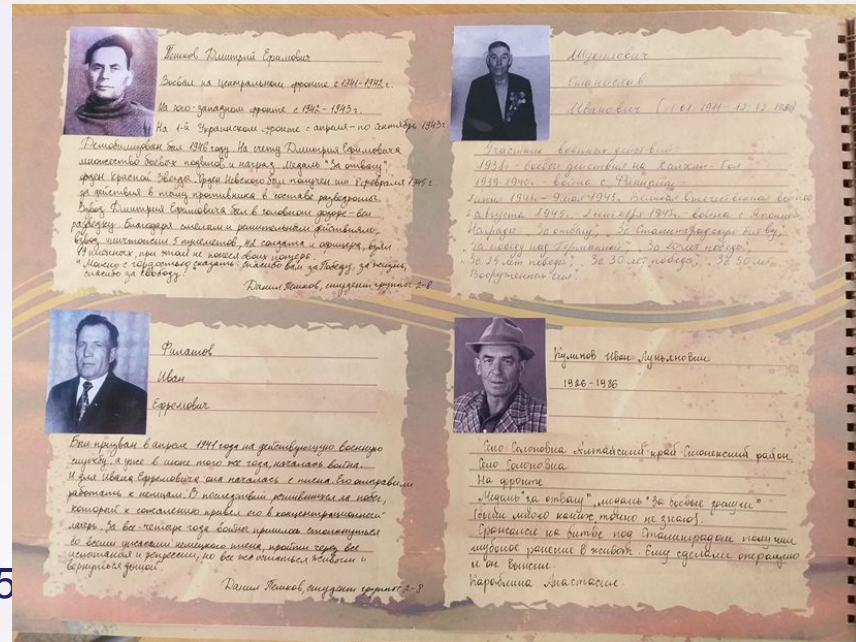 Пешков Дмитрий Ефимович
Воевал на центральном фронте с 1941-1942 г.
На юго-западном фронте с 1942-1943 г.
На 1-й Украинском фронте с апреля - по сентябрь 1943г.
Демобилизирован был 1946 году. На счету Дмитрия Ефимовича
множество боевых подвигов и наград. Медаль "За отвагу"
орден Красной Звезды. Орден Невского был получен 1945 г
за действия в тылу противника в составе разведроты.
Взвод Дмитрия Ефимовича был в головном дозоре - вел
разведку. Благодаря смелым и решительным действиям,
взвод уничтожил 5 пулеметов, солдата и офицера, взял
19 пленных, при этом не понеся своих потерь.
"Можно с гордостью сказать: спасибо вам за Победу, за жизнь,
спасибо за свободу."
Данил Пешков, студент группы 2-8
Станислав
Иванович
Участник военных действий
1938г. - боевые действия на Халхин-Гол
1939-1940г. - война с Финляндией
9 мая 1945г. Великая отечественная война
августа 1945г. 2 сентября 1945г. - война с Японией
Награды: "За отвагу", "За Сталинградскую битву",
"За победу над Германией", "За 20 лет победы",
"За 25 лет победы", "За 30 лет победы", "За 50 лет
Вооруженных сил".
Филатов
Иван
Ефремович
Был призван в апреле 1941 года на действующую военную
службу, а уже в июне того же года, началась война.
И для Ивана Ефремовича она началась с плена. Его отправили
работать к немцам. В последствии решившись на побег,
который к сожалению привел его в концентрационный
лагерь. За все четыре года войны пришлось столкнуться
со всеми ужасами немецкого плена, пройти через все
испытания и депрессии, но все же остаться живым и
вернуться домой.
Данил Пешков, студент группы 2-8
Куликов Иван Лукьянович
1926-1986
Село Солоновка Алтайский край Смоленский район
Село Солоновка
На фронте
Медаль "за отвагу", медаль "За боевые заслуги"
(были много каких, точно не знаю).
Сражался на битве под Сталинградом получил
глубокое ранение в живот. Ему сделали операцию
и он выжил.
Анастасия.
5